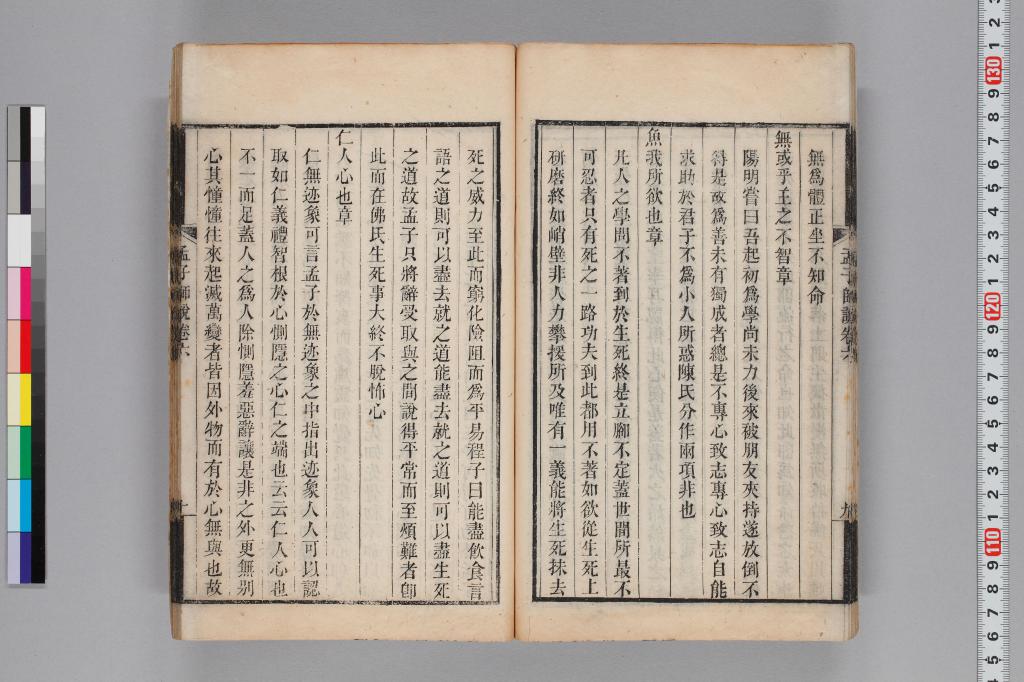 無爲體正坐不知命
無或乎王之不智章
陽明嘗曰吾起初爲學尚未力後來破朋友夾持遂放倒不
得是故爲善未有獨成者總是不專心致志專心致志自能
求助於君子不爲小人所惑陳氏分作兩項非也
魚我所欲也章
凡人之學問不著到於生死終是立腳不定蓋世間所最不
可忍者只有死之一路功夫到此都用不著如欲從生死上
研磨終如峭壁非人力攀援所及唯有一義能將生死抹去
孟子師說卷六
九
死之威力至此而窮化險阻而爲平易程子曰能盡飲食言
語之道則可以盡去就之道能盡去就之道則可以盡生死
之道故孟子只將辭受取與之間說得平常而至煩難者卽
此而在佛氏生死事大終不脫怖心
仁人心也章
仁無迹象可言孟子於無迹象之中指出迹象人人可以認
取如仁義禮智根於心惻隱之心仁之端也云云仁人心也
不一而足蓋人之爲人除惻隱羞惡辭讓是非之外更無別
心其憧憧往來起滅萬變者皆因外物而有於心無與也故
孟子師說卷六
十